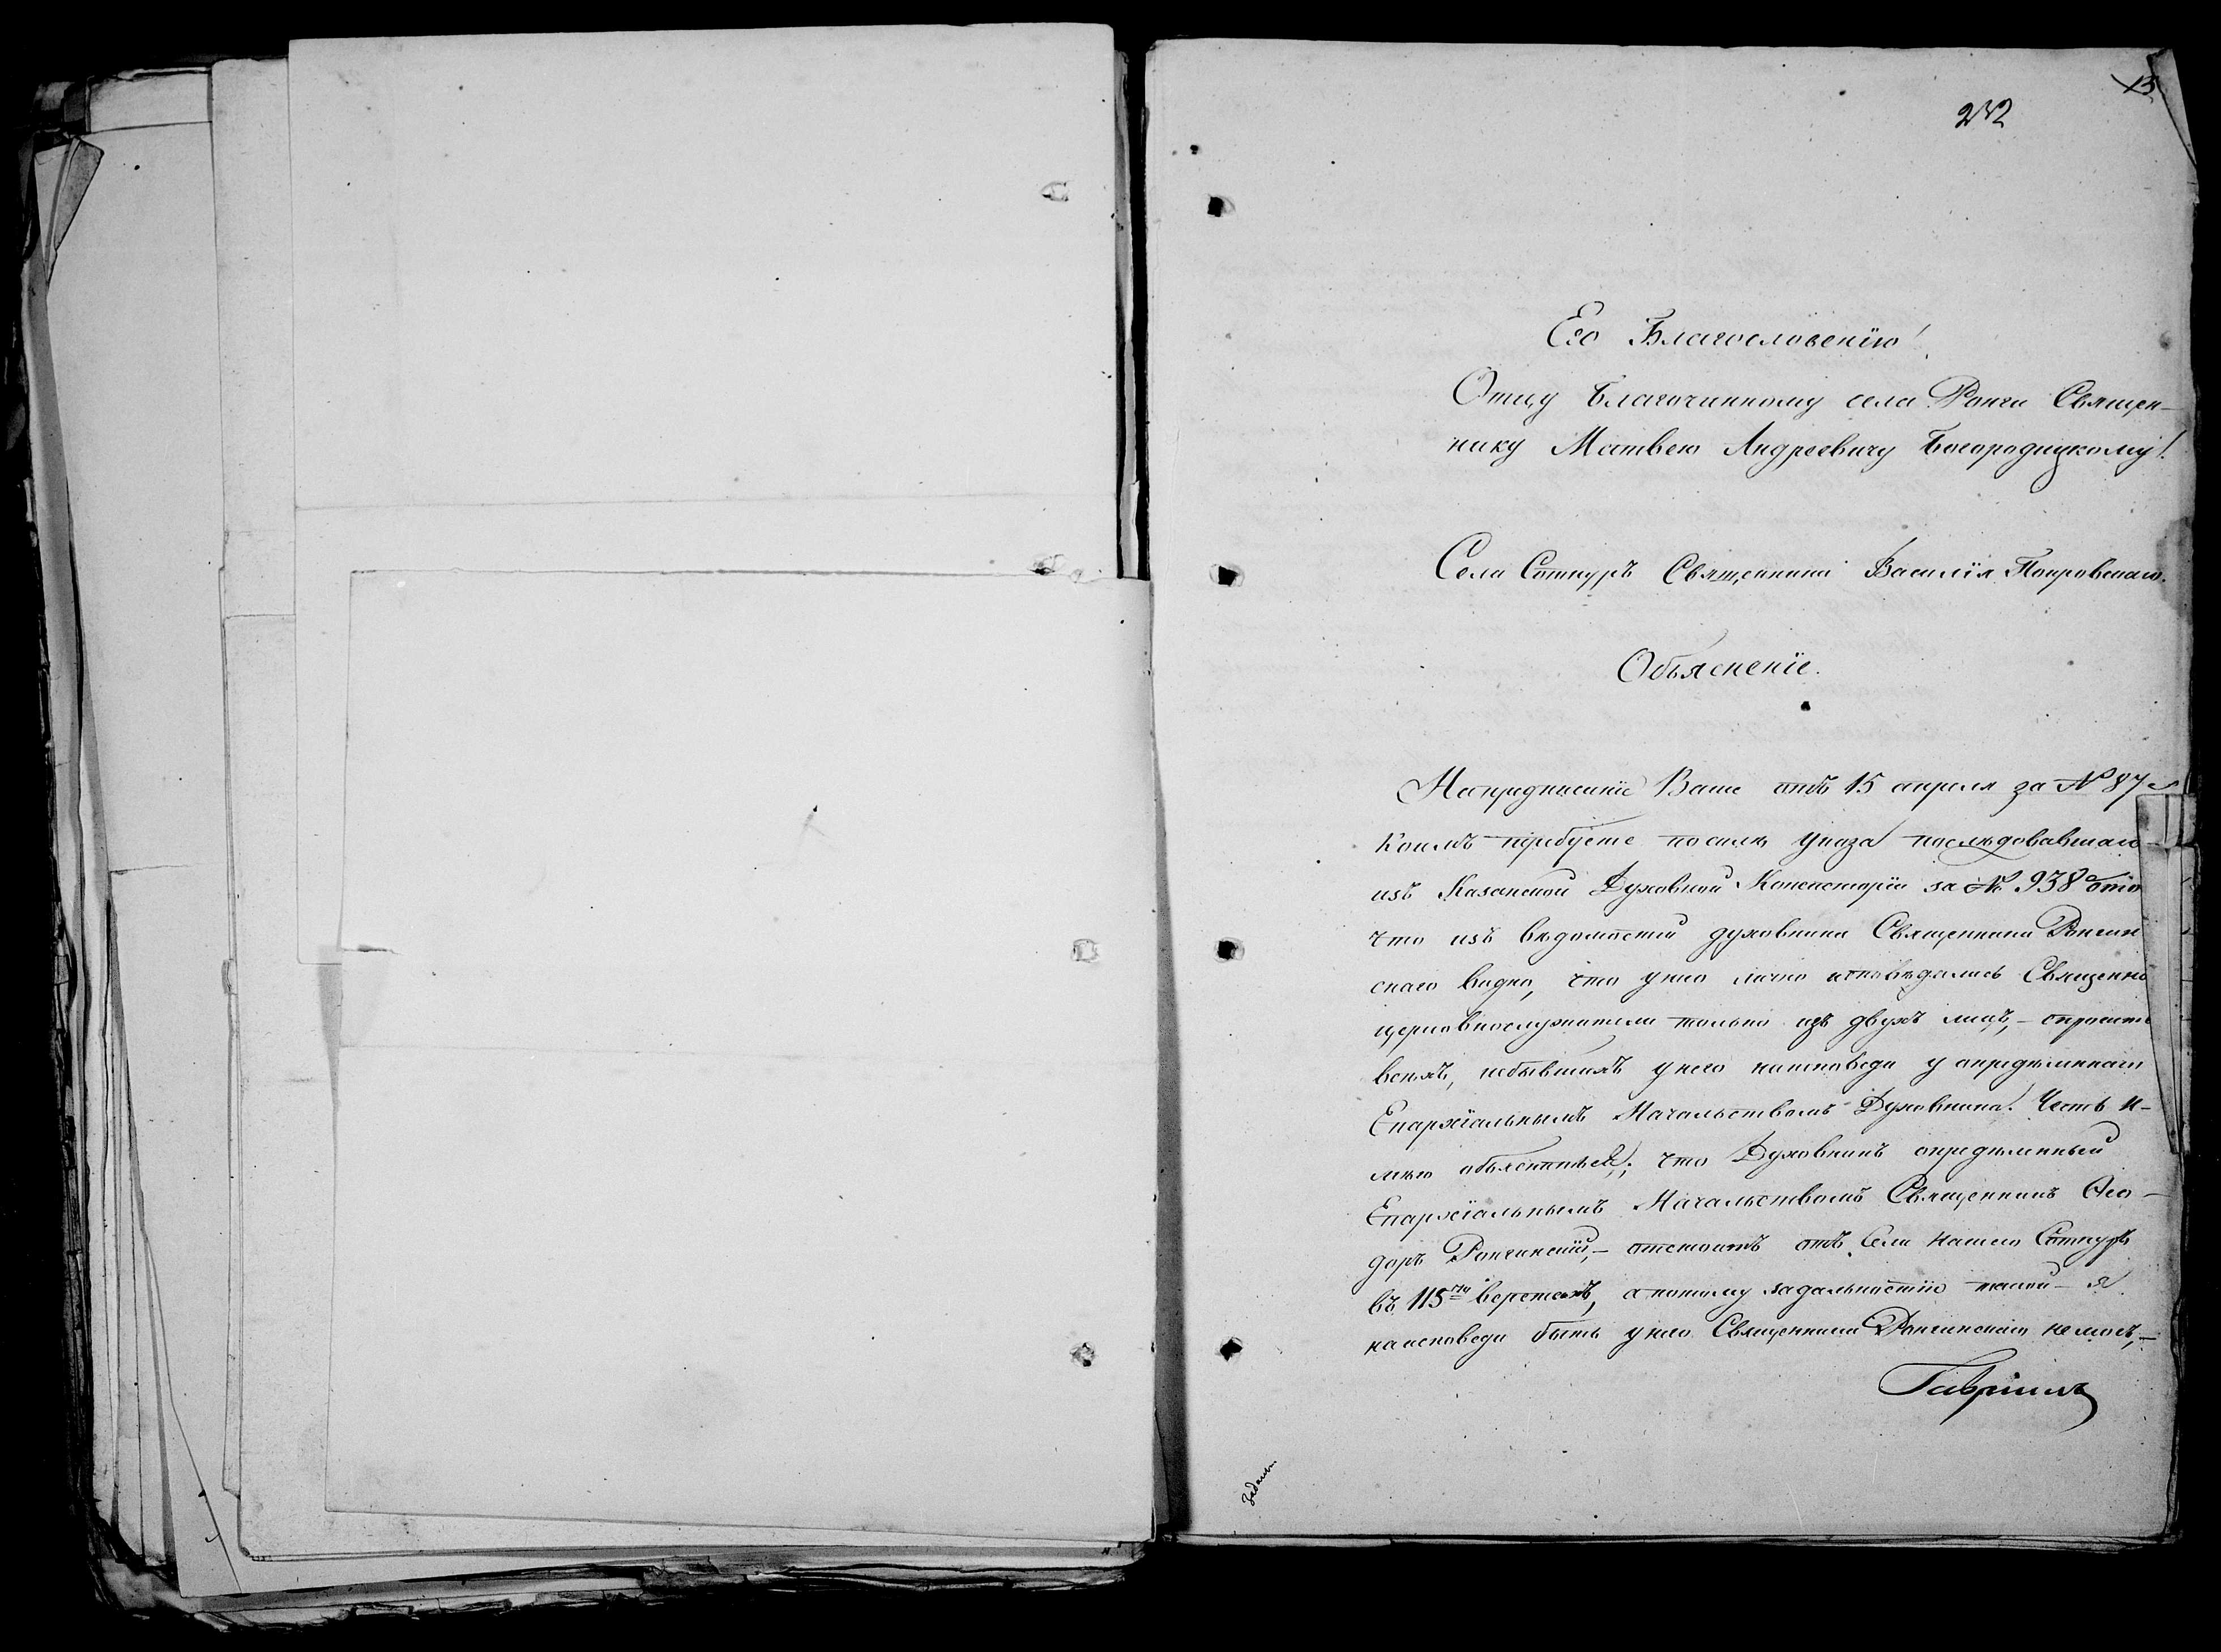 13
232
Его Благословенію!
Отцу Благочинному села Ронги Священ-
нику Матвею Андреевичу Богородицкому!
Села Сотнуръ Священника Василія Покровскаго.
Объясненіе.
Напредписаніе Ваше отъ 15 апреля за № 87
Коимъ требуете посилѣ указа последовавшаго
изъ Казанской Духовной Консисторіи за № 938
что изъ вѣдомости духовника Священника Ронгин
скаго видно, что унего лично исповѣдались Священно
церковнослужители только изъ двухъ
всехъ, небывшихъ унего наисповеди у определеннаго
Епархіальнымъ Начальствомъ Духовника. Честь и-
мѣю объяснить; что Духовникъ определенный
Епархіальнымъ Начальствомъ Священникъ Ѳео-
доръ Ронгинскій,- отстоитъ отъ Села нашего Сотнуръ
въ 115ти верстахъ, апотому задальностію такой я
наисповеди быть унего Священника Ронгинскаго немогъ,-